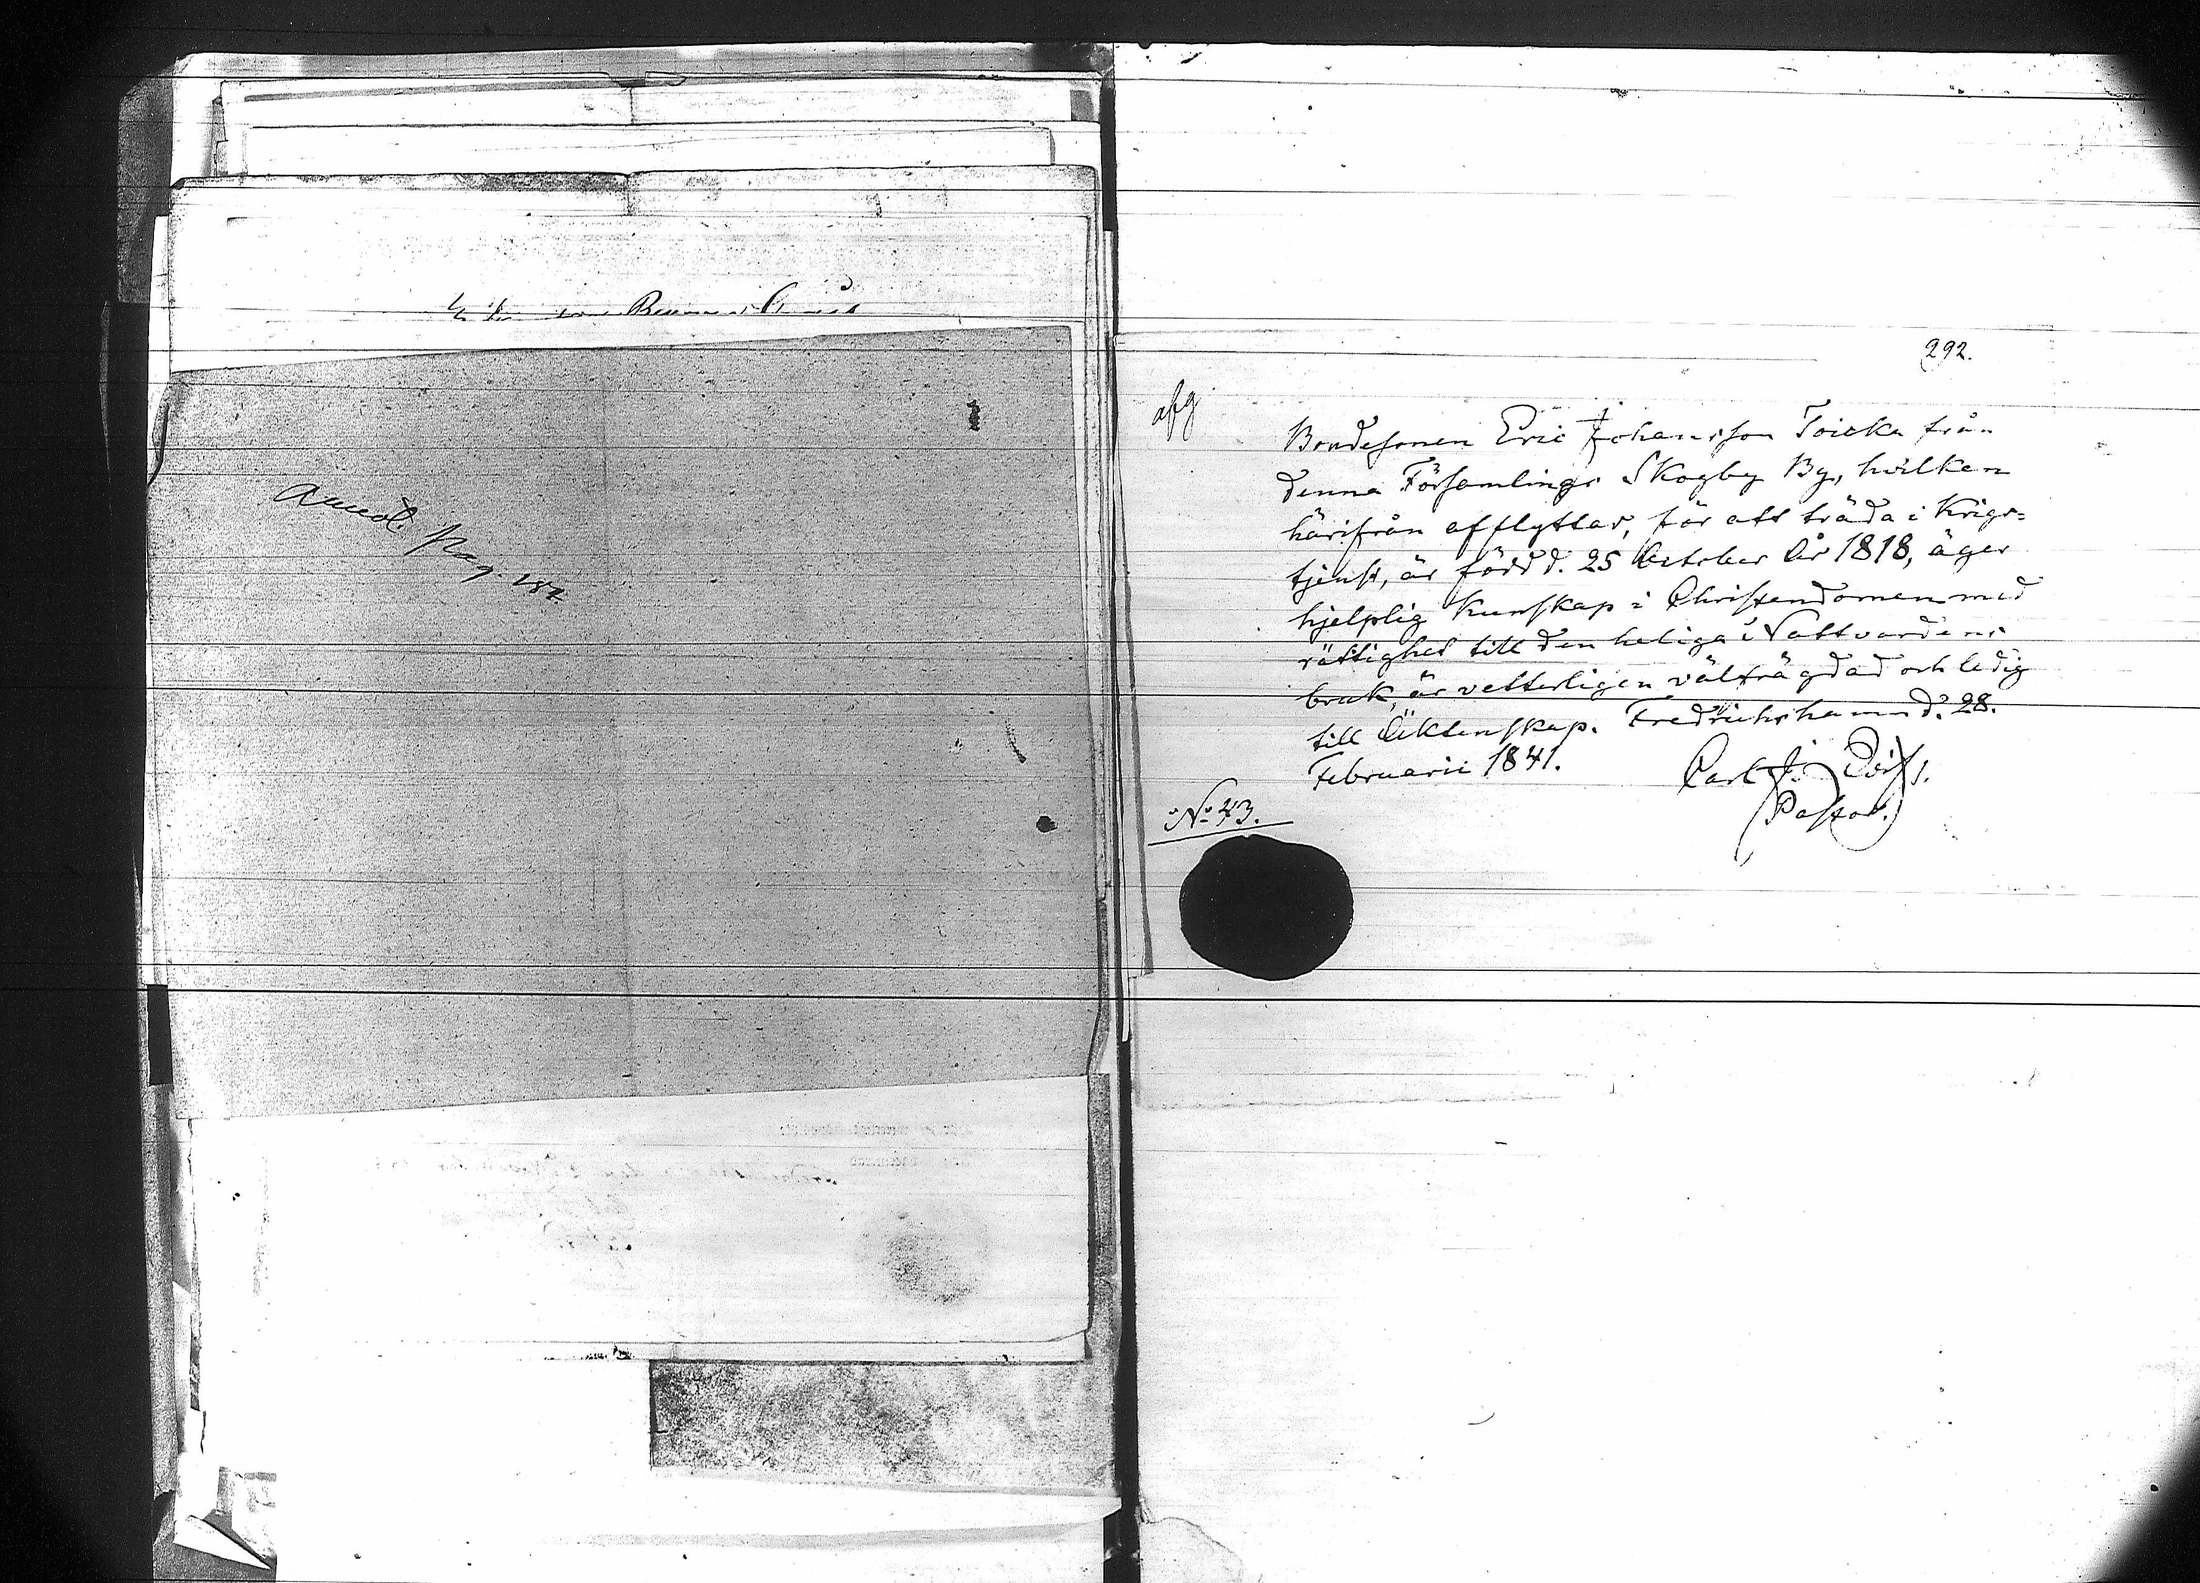 Annot. Pag. 187.
292.
afg
Bondesonen Eric Johansson Toicka från
denna Församlings Skogby By, hvilken
härifrån afflyttar, för att träda i Krigs=
tjenst, är född d. 25 October År 1818, äger
hjelplig kunskap i Christendomen med
rättighet till den heliga Nattvardens
bruk, är vetterligen välfrägdad och ledig
till Äktenskap. Fredrichshamn d. 28.
Februarii 1841.
Carl J.
Pastor.
No 43.